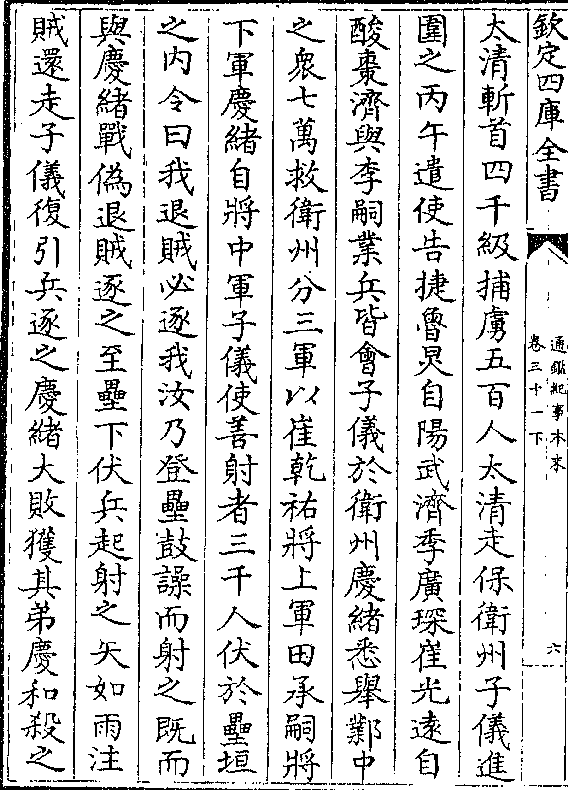 欽定四庫全書
通鑑紀事本末
卷三十一下
六
太清斬首四千級捕虜五百人太清走保衛州子儀進
圍之丙午遣使告捷魯炅自陽武濟季廣琛崔光遠自
酸棗濟與李嗣業兵皆會子儀於衛州慶緒悉舉鄴中
之衆七萬救衛州分三軍以崔乾祐將上軍田承嗣將
下軍慶緒自將中軍子儀使善射者三千人伏於壘垣
之内令曰我退賊必逐我汝乃登壘鼓譟而射之既而
與慶緒戰偽退賊逐之至壘下伏兵起射之矢如雨注
賊還走子儀復引兵逐之慶緒大敗獲其弟慶和殺之